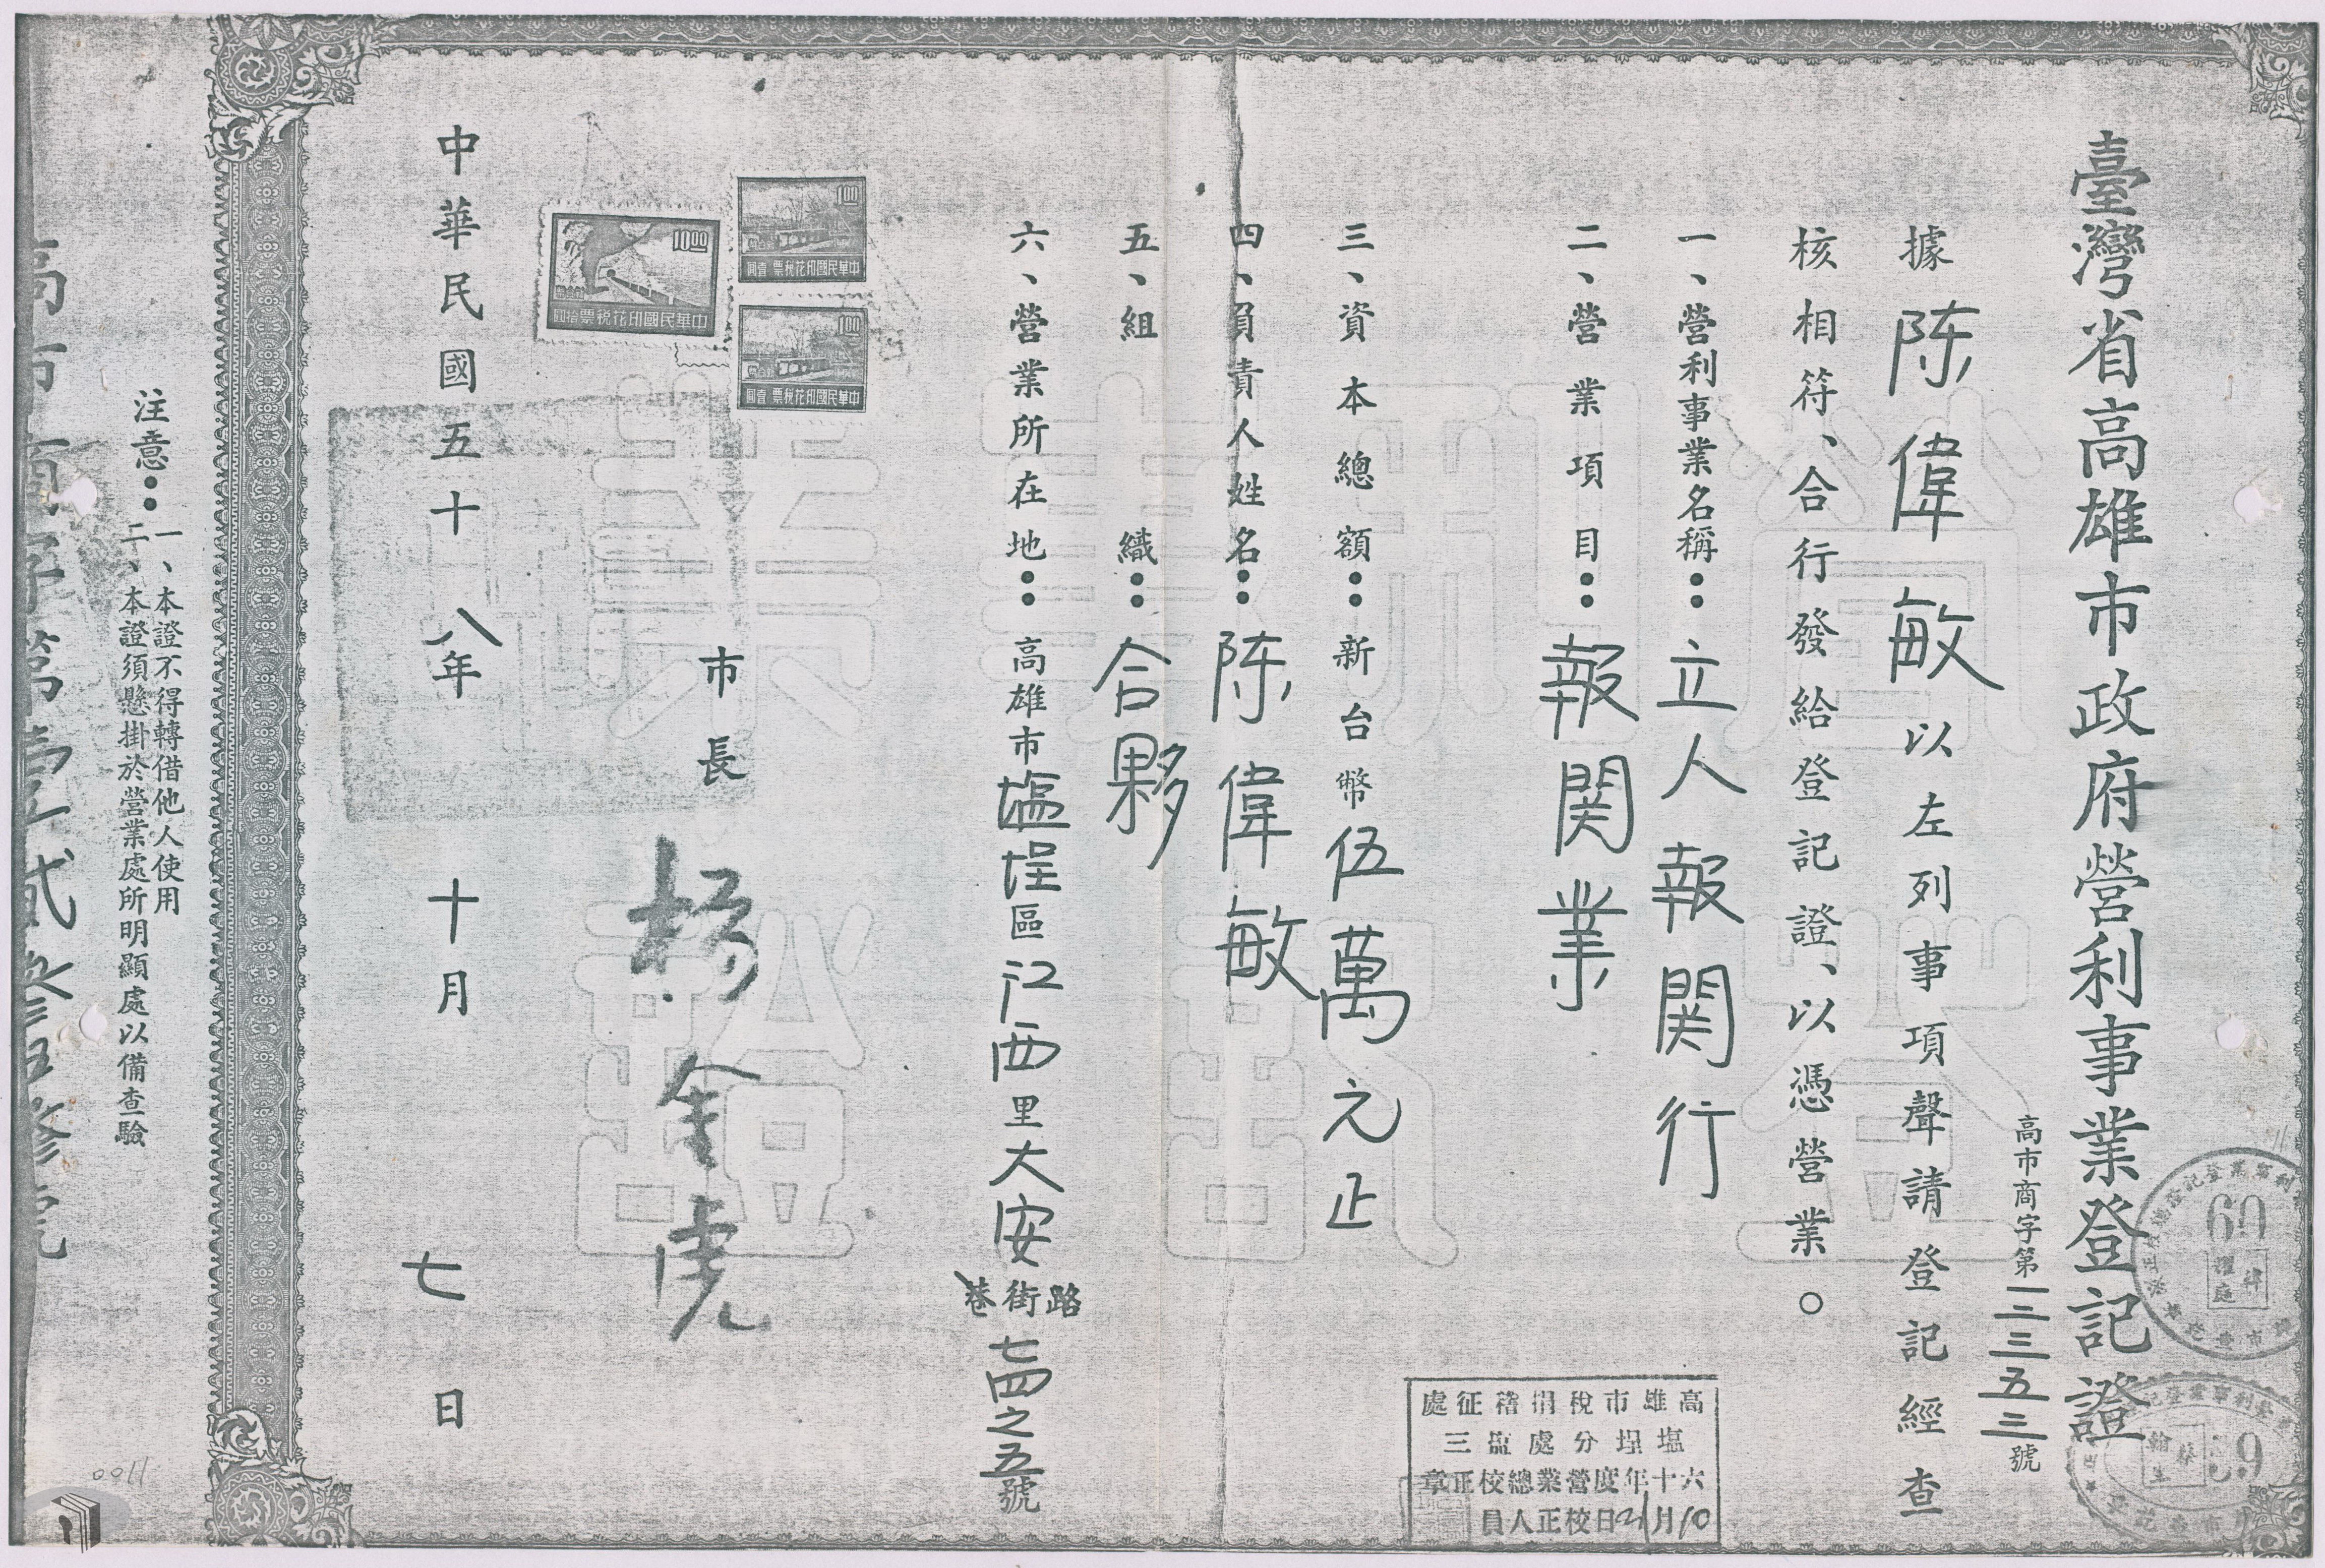 臺灣省高雄市政府營利事業登記證
高市商字第一二三五三號
據陈偉敏以左列事項聲請登記經查
核相符、合行發給登記證、以憑營業。
一、營利事業名稱：立人報関行
二、營業項目：報関業
三、資本總額：新台幣伍萬元正
四、負責人姓名：陈偉敏
五、組織：合夥
六、營業所在地：高雄市塩埕區江西里大安路街巷七四之五號
市長 楊金虎
中華民國五十八年十月七日
注意：一、本證不得轉借他人使用
二、本證須懸掛於營業處所明顯處以備查驗
高市商字第壹貳叁伍號
營利事業登記證
10.00
中華民國印花稅票 拾圓
1.00
中華民國印花稅票 壹圓
1.00
中華民國印花稅票 壹圓
高雄市稅捐稽征處
塩埕分處監三
六十年度營業總校正章
10月21日校正人員
60
59
0011